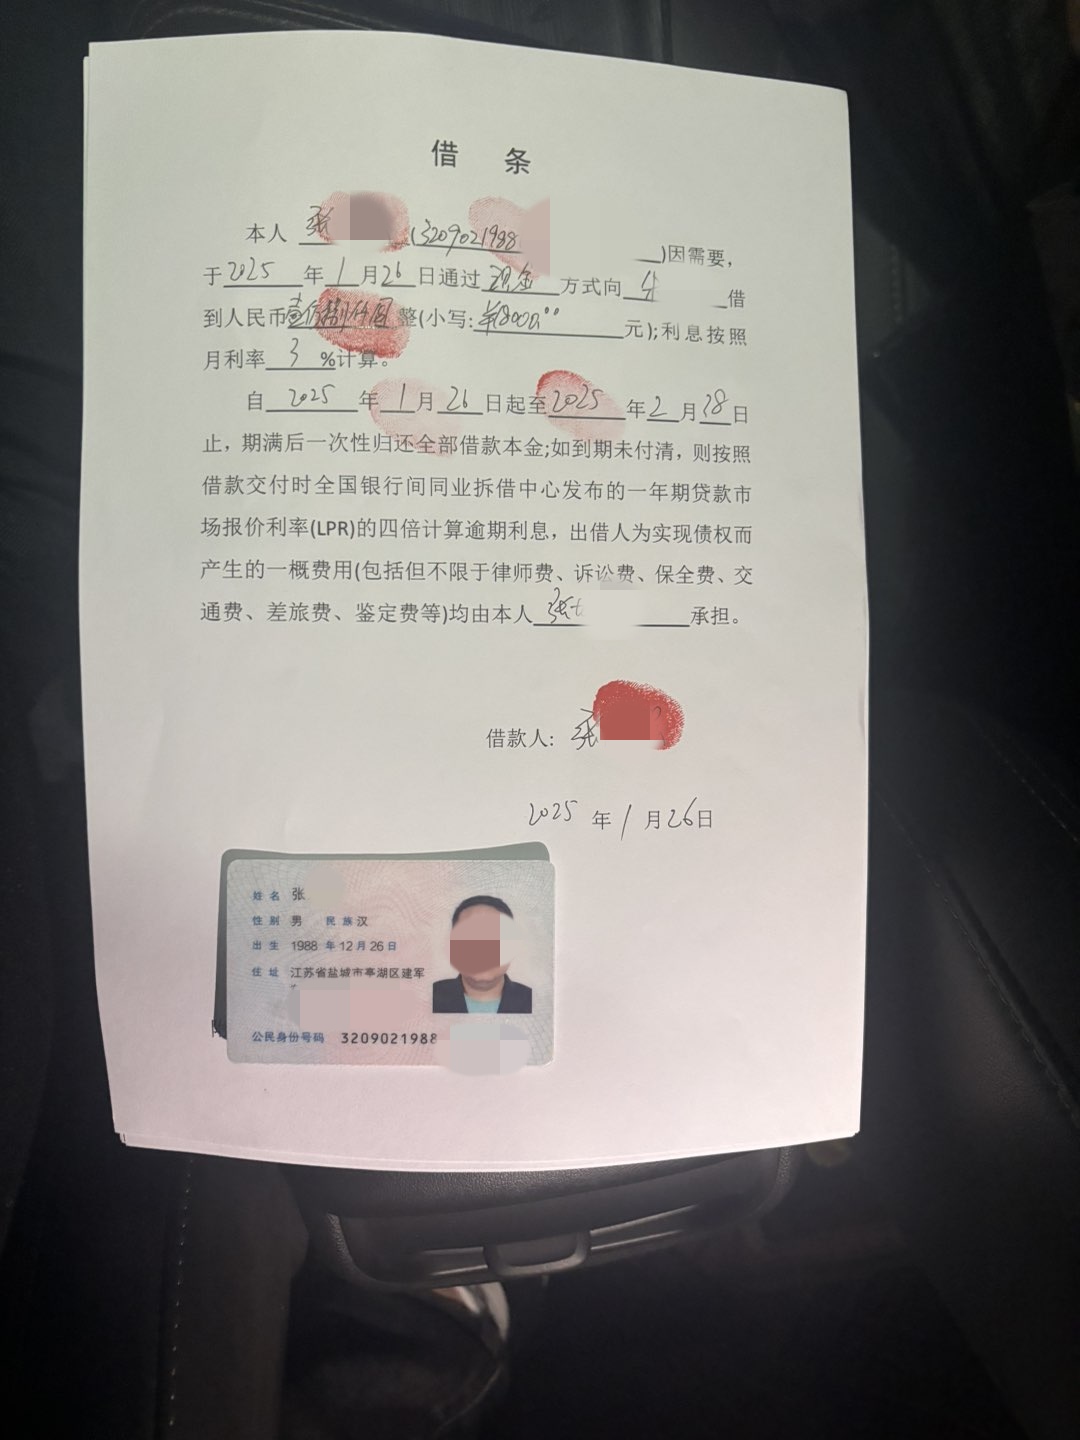 借 条
本人 张 (3209021988 )因需要,
于2025年1月26日通过现金方式向 借
到人民币 整(小写: 元);利息按照
月利率3%计算。
自2025年1月26日起至2025年2月28日
止,期满后一次性归还全部借款本金;如到期未付清,则按照
借款交付时全国银行间同业拆借中心发布的一年期贷款市
场报价利率(LPR)的四倍计算逾期利息,出借人为实现债权而
产生的一概费用(包括但不限于律师费、诉讼费、保全费、交
通费、差旅费、鉴定费等)均由本人张 承担。
借款人: 张
2025年1月26日
姓名 张
性别 男 民族 汉
出生 1988年12月26日
住址 江苏省盐城市亭湖区建军
公民身份号码 3209021988